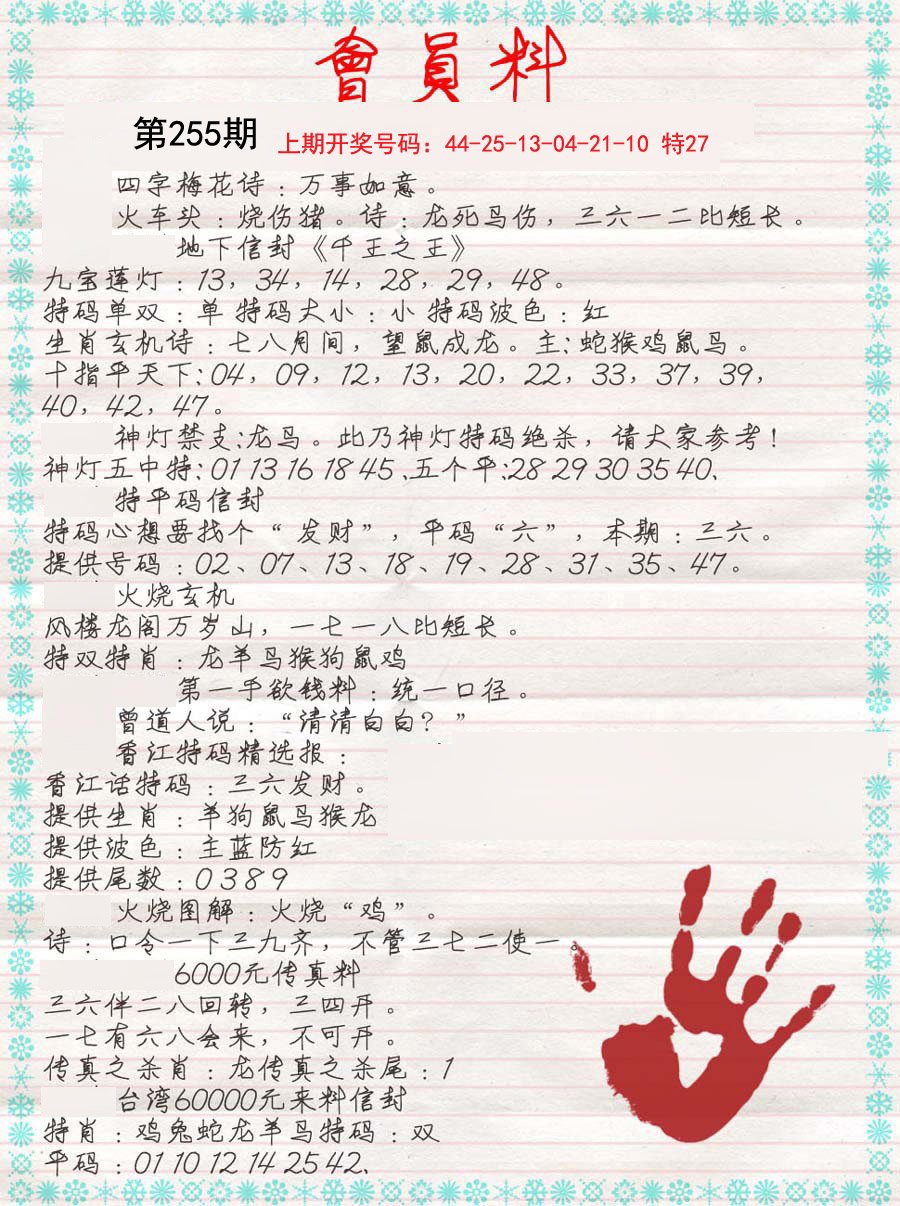 會員料
第255期 上期开奖号码：44-25-13-04-21-10 特27
四字梅花诗：万事如意。
火车头：烧伤猪。诗：龙死鸟伤，三六一二比短长。
地下信封《千王之王》
九宝莲灯：13，34，14，28，29，48。
特码单双：单 特码大小：小 特码波色：红
生肖玄机诗：七八月间，望鼠成龙。主：蛇猴鸡鼠马。
十指平天下：04，09，12，13，20，22，33，37，39，
40，42，47。
神灯禁支：龙马。此乃神灯特码绝杀，请大家参考！
神灯五中特：01 13 16 18 45、五个平：28 29 30 35 40、
特平码信封
特码心想要找个“发财”，平码“六”，本期：三六。
提供号码：02、07、13、18、19、28、31、35、47。
火烧玄机
风楼龙阁万岁山，一七一八比短长。
特双特肖：龙羊马猴狗鼠鸡
第一手欲钱料：统一口径。
曾道人说：“清清白白？”
香江特码精选报：
香江话特码：三六发财。
提供生肖：羊狗鼠马猴龙
提供波色：主蓝防红
提供尾数：0 3 8 9
火烧图解：火烧“鸡”。
诗：口令一下三九齐，不管三七二使一。
6000元传真料
三六伴二八回转，三四开。
一七有六八会来，不可开。
传真之杀肖：龙传真之杀尾：1
台湾60000元来料信封
特肖：鸡兔蛇龙羊马特码：双
平码：01 10 12 14 25 42、